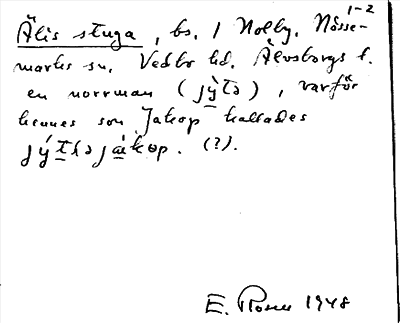 1-2
Älis stuga, bs. / Nolby. Nösse-
marks sn. Vedbo hd. Älvsborgs l.
en norrman (jỳtə), varför
hennes son Jakop kallades
jýtləjákop. (?).
E. Rosen 1948